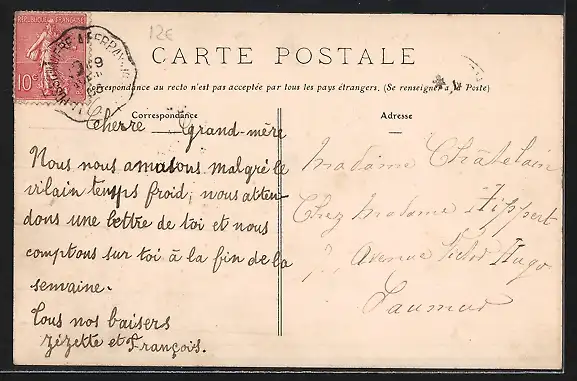 RÉPUBLIQUE FRANÇAISE
10c
12€
CARTE POSTALE
Correspondance au recto n'est pas acceptée par tous les pays étrangers. (Se renseigner à la Poste)
Correspondance
Chère Grand-mère
Nous nous amusons malgré le
vilain temps froid, nous atten-
dons une lettre de toi et nous
comptons sur toi à la fin de la
semaine.
Tous nos baisers
Zizette et François.
Adresse
Madame Châtelain
Chez Madame Hippert
7, Avenue Victor Hugo
Saumur